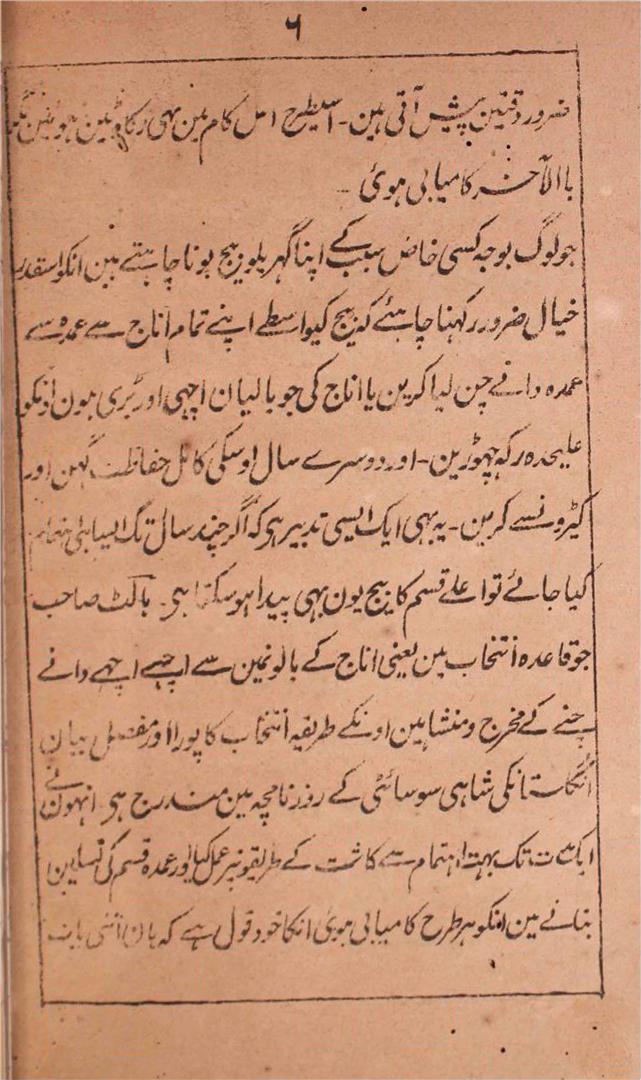 ۶
ضرور دقتین پیش آتی ہین۔ اسیطرح اس کام مین بہی رکاوٹین ہوئین
بالآخر کامیابی ہوئی۔
جو لوگ بوجہ کسی خاص سبب کے اپنا گہریلو بیج بونا چاہتے ہین انکو اسقدر
خیال ضرور رکہنا چاہئے کہ بیج کیواسطے اپنے تمام اناج سے عمدہ سے
عمدہ دانے چن لیا کرین یا اناج کی جو بالیان اچہی اور بڑی ہون اونکو
علیحدہ رکہ چہوڑین۔ اور دوسرے سال اوسکی کامل حفاظت گہن اور
کیڑونسے کرین۔ یہ بہی ایک ایسی تدبیر ہو کہ اگر چند سال تک ایسا ہی
کیا جائے تو اعلے قسم کا بیج یون بہی پیدا ہو سکتا ہی۔ ہالٹ صاحب
جو قاعدہ انتخاب مین یعنی اناج کے بالونمین سے اچہے اچہے دانے
چننے کے مخرج و منشا ہین اونکے طریقہ انتخاب کا پورا اور مفصل بیان
انگلستانکی شاہی سوسائٹی کے روزنامچہ مین مندرج ہی۔ انہون نے
ایک مدت تک بہت اہتمام سے کاشت کے طریقونپر عمل کیا اور عمدہ قسم کی نسلین
بنانے مین انکو ہر طرح کامیابی ہوئی انکا خود قول ہے کہ ہان اتنی بات